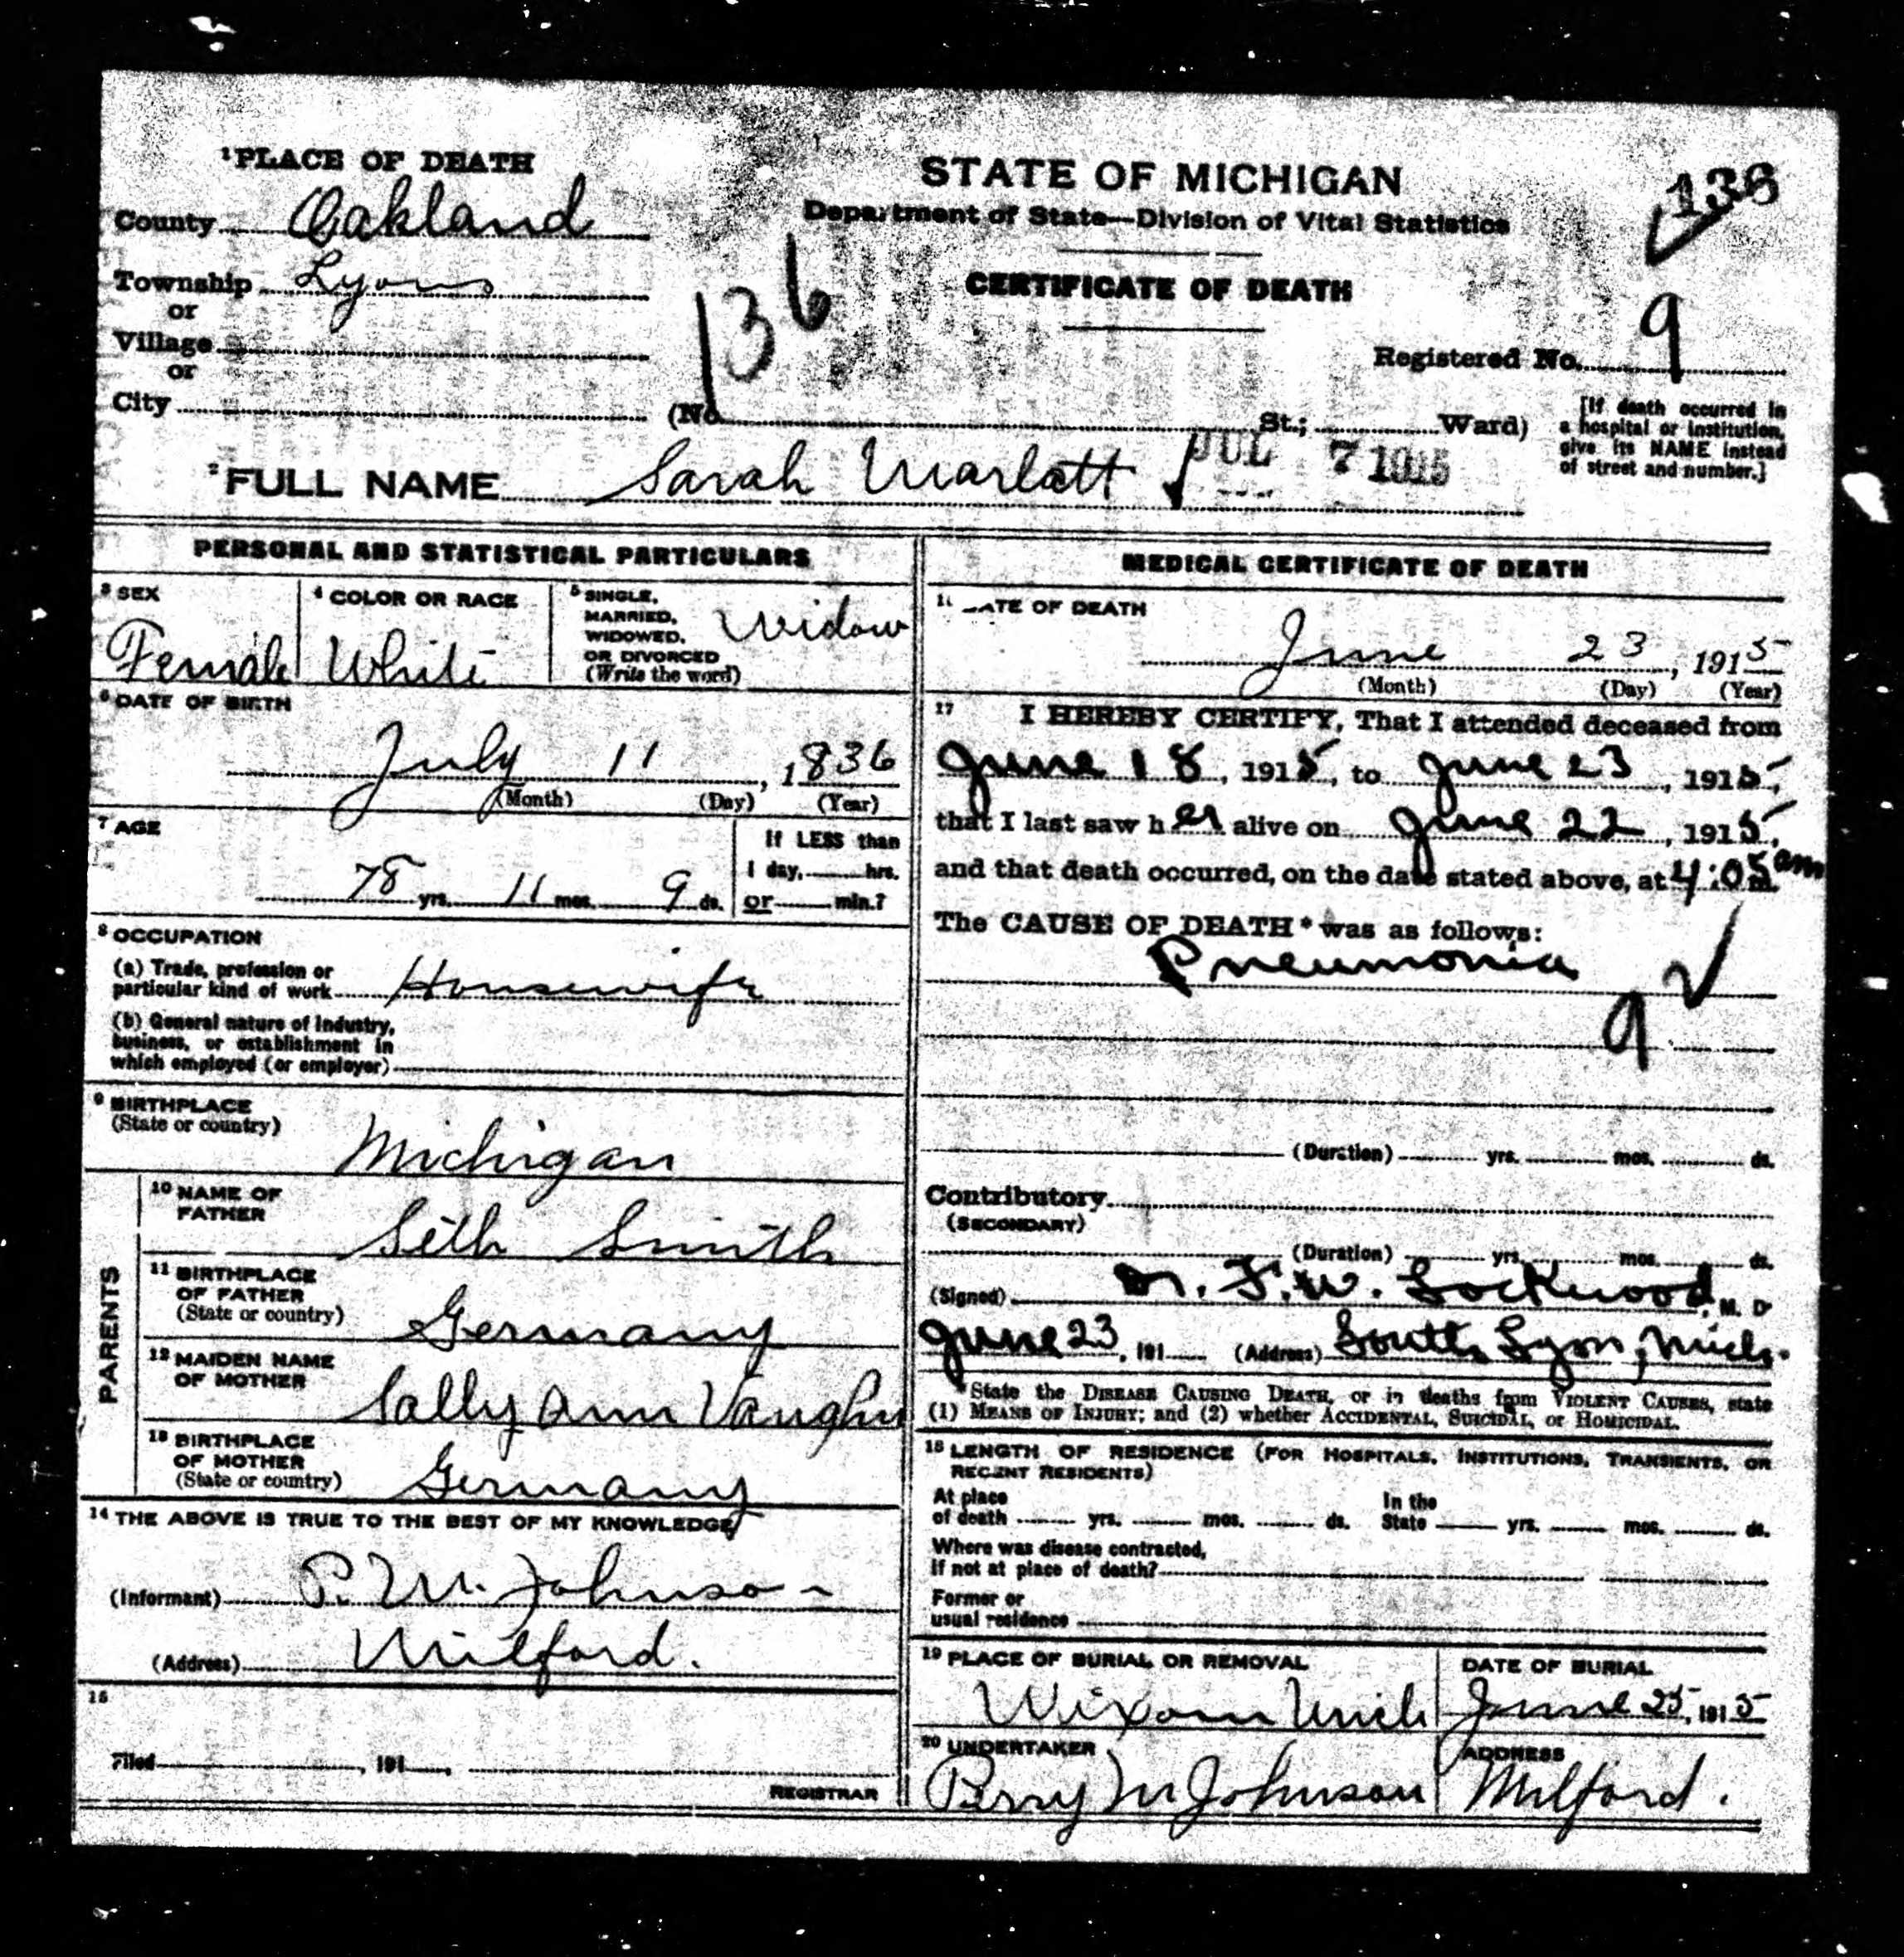 1 PLACE OF DEATH
County Oakland
Township Lyons
or
Village
or
City
STATE OF MICHIGAN
Department of State—Division of Vital Statistics
CERTIFICATE OF DEATH
136
136
Registered No. 9
(No. St.; Ward)
[If death occurred in
a hospital or institution,
give its NAME instead
of street and number.]
2 FULL NAME Sarah Marlatt
JUL 7 1915
PERSONAL AND STATISTICAL PARTICULARS
3 SEX
Female
4 COLOR OR RACE
White
5 SINGLE,
MARRIED,
WIDOWED,
OR DIVORCED
(Write the word)
Widow
6 DATE OF BIRTH
July 11, 1836
(Month) (Day) (Year)
7 AGE
78 yrs. 11 mos. 9 ds.
If LESS than
1 day, hrs.
or min.?
8 OCCUPATION
(a) Trade, profession or
particular kind of work Housewife
(b) General nature of industry,
business, or establishment in
which employed (or employer)
9 BIRTHPLACE
(State or country)
Michigan
PARENTS
10 NAME OF
FATHER
Seth Smith
11 BIRTHPLACE
OF FATHER
(State or country)
Germany
12 MAIDEN NAME
OF MOTHER
Sally Ann Vaughn
13 BIRTHPLACE
OF MOTHER
(State or country)
Germany
14 THE ABOVE IS TRUE TO THE BEST OF MY KNOWLEDGE
(Informant) P. M. Johnson
(Address) Milford.
15
Filed , 191 ,
REGISTRAR
MEDICAL CERTIFICATE OF DEATH
16 DATE OF DEATH
June 23, 1915
(Month) (Day) (Year)
17 I HEREBY CERTIFY, That I attended deceased from
June 18, 1915, to June 23, 1915,
that I last saw her alive on June 22, 1915,
and that death occurred, on the date stated above, at 4:05 am m.
The CAUSE OF DEATH* was as follows:
Pneumonia
9
(Duration) yrs. mos. ds.
Contributory
(SECONDARY)
(Duration) yrs. mos. ds.
(Signed) Dr. F. W. Lockwood, M. D
June 23, 191 (Address) South Lyon, Mich.
*State the DISEASE CAUSING DEATH, or in deaths from VIOLENT CAUSES, state
(1) MEANS OF INJURY; and (2) whether ACCIDENTAL, SUICIDAL, or HOMICIDAL.
18 LENGTH OF RESIDENCE (FOR HOSPITALS, INSTITUTIONS, TRANSIENTS, OR
RECENT RESIDENTS)
At place
of death yrs. mos. ds.
In the
State yrs. mos. ds.
Where was disease contracted,
if not at place of death?
Former or
usual residence
19 PLACE OF BURIAL OR REMOVAL
Wixom Mich
DATE OF BURIAL
June 25, 1915
20 UNDERTAKER
Perry M Johnson
ADDRESS
Milford.